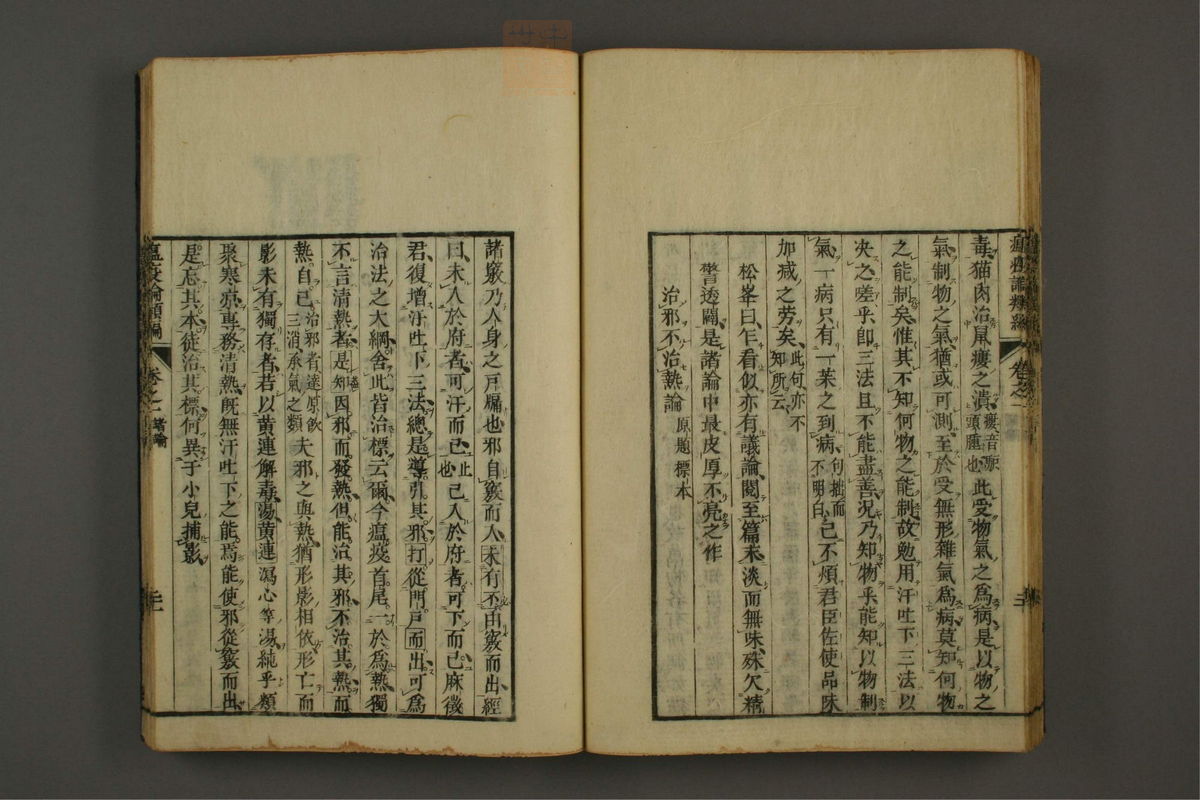 毒猫肉治鼠瘻之潰瘻音漏頭腫也此受物氣之爲病是以物之
氣制物之氣猶或可測至於受無形雜氣爲病莫知何物
之能制矣惟其不知何物之能制故勉用汗吐下三法以
决之嗟乎即三法且不能盡善况乃知物乎能知以物制
氣一病只有一藥之到病句拙而不明白已不煩君臣佐使品味
加减之劳矣此句亦不知所云
松峯曰乍看似亦有議論閱至篇末淡而無味殊欠精
警透闢是諸論中最皮厚不亮之作
治邪不治熱論原題標本
諸竅乃人身之戸牖也邪自竅而入未有不由竅而出經
曰未入於府者可汗而已止也已入於府者可下而已麻徵
君復增汗吐下三法總是導引其邪打從門戸而出可爲
治法之大綱舍此皆治標云爾今瘟疫首尾一於爲熱獨
不言清熱者是知因邪而發熱但能治其邪不治其熱而
熱自已治邪者達原飲三消承氣之類夫邪之與熱猶形影相依形亡而
影未有獨存者若以黄連解毒湯黄連瀉心等湯純乎類
聚寒凉專務清熱既無汗吐下之能焉能使邪從竅而出
是忘其本徒治其標何異于小兒捕影
瘟疫論類編
卷之一 諸論